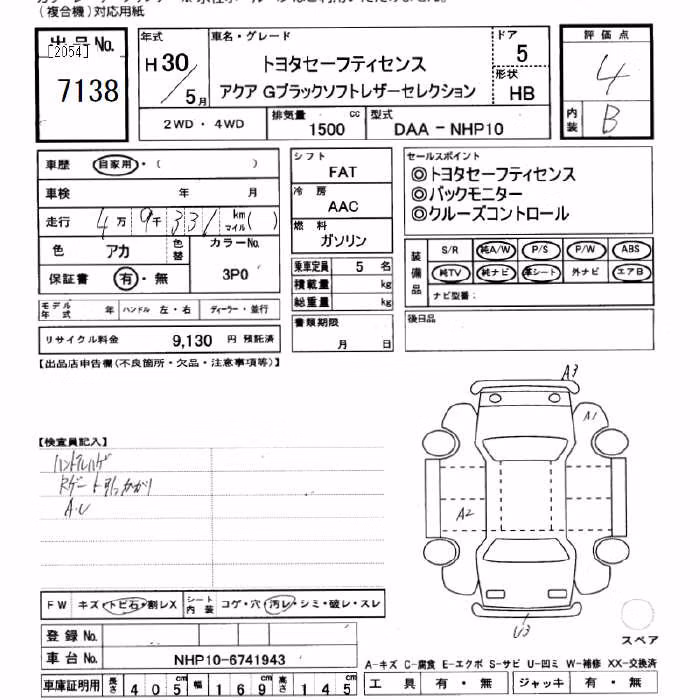 (複合機)対応用紙
出品No.
[2054]
7138
年式
H30/5月
車名・グレード
トヨタセーフティセンス
アクア Gブラックソフトレザーセレクション
ドア
5
形状
HB
評価点
4
内装
B
2WD・4WD
排気量
1500 cc
型式
DAA-NHP10
車歴 自家用・( )
車検 年 月
走行 4万9千331 km マイル( )
色 アカ
色替
カラーNo.
3P0
保証書 有・無
モデル年式 年 ハンドル 左・右 ディーラー・並行
リサイクル料金 9,130 円 預託済
シフト
FAT
冷房
AAC
燃料
ガソリン
乗車定員 5 名
積載量 kg
総重量 kg
書類期限
月 日
セールスポイント
◎トヨタセーフティセンス
◎バックモニター
◎クルーズコントロール
装備品
S/R 純A/W P/S P/W ABS
純TV 純ナビ 革シート 外ナビ エアB
ナビ型番:
後日品
【出品店申告欄(不良箇所・欠品・注意事項等)】
【検査員記入】
ハンドルハゲ
Rゲート引っかかり
A.U
A3
A1
A2
U3
スペア
FW キズ・トビ石・割レX
シート内装 コゲ・穴・汚レ・シミ・破レ・スレ
登録No.
車台No. NHP10-6741943
車庫証明用 長さ 405cm 幅 169cm 高さ 145cm
A-キズ C-腐食 E-エクボ S-サビ U-凹ミ W-補修 XX-交換済
工具 有・無 ジャッキ 有・無